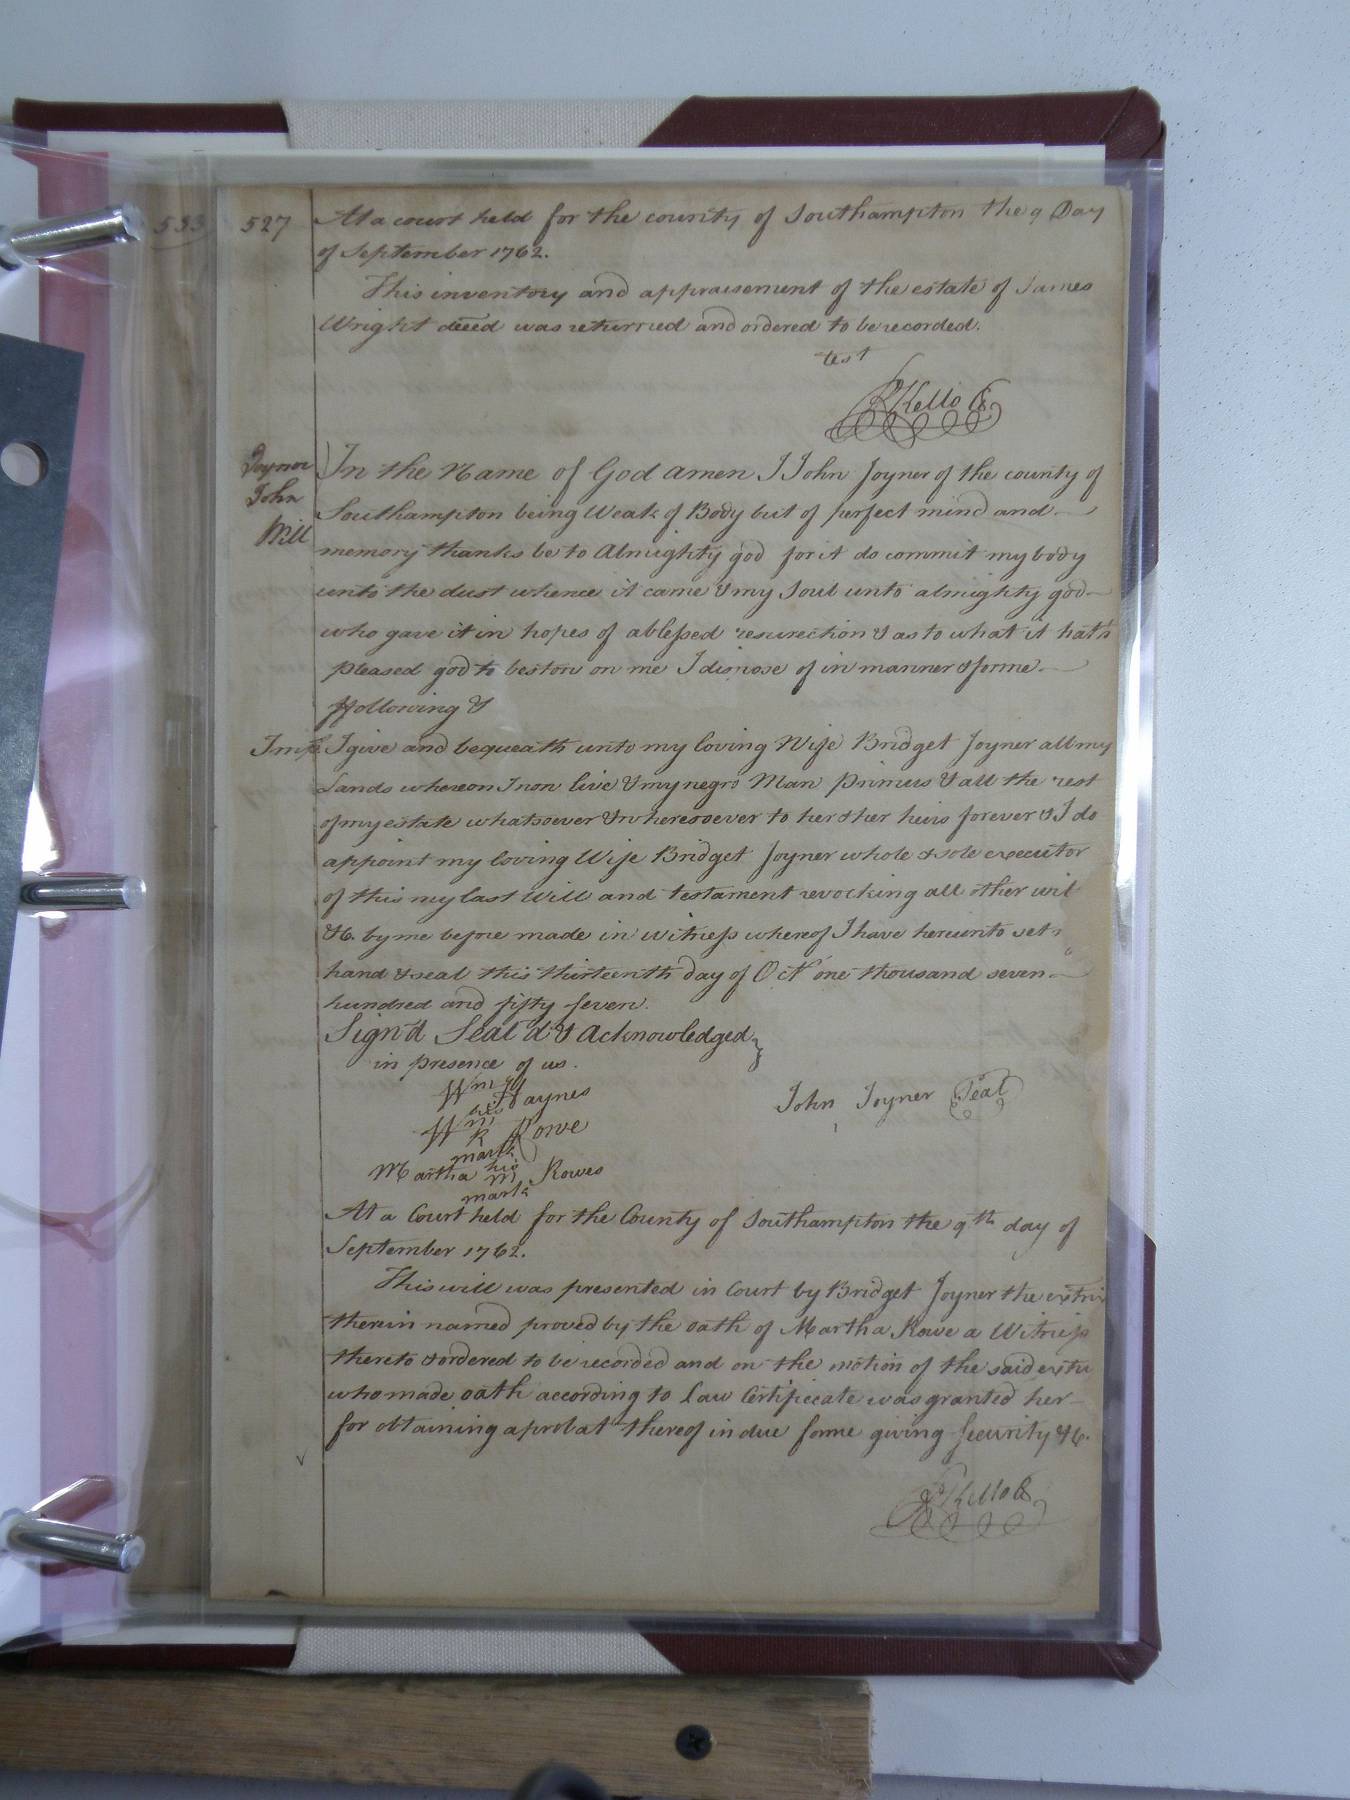 533
527
At a court held for the county of Southampton the 9 Day
of September 1762.
This inventory and appraisement of the estate of James
Wright deced was returned and ordered to be recorded.
test
R Kello Cl
Joyner
John
Will
In the Name of God amen I John Joyner of the county of
Southampton being Weak of Body but of perfect mind and
memory thanks be to Almighty god for it do commit my body
unto the dust whence it came & my Soul unto almighty god
who gave it in hopes of a blessed resurection & as to what it hath
pleased god to bestow on me I dispose of in manner & forme
ffollowing &
Imps. I give and bequeath unto my loving Wife Bridget Joyner all my
Lands whereon I now live & my negro Man Primus & all the rest
of my estate whatsoever & wheresoever to her & her heirs forever & I do
appoint my loving Wife Bridget Joyner whole & sole executor
of this my last Will and testament revocking all other wil
&c. by me before made in witness whereof I have hereunto set
hand & seal this thirteenth day of Oct. one thousand seven
hundred and fifty seven.
Sign'd Seal'd & Acknowledged
in presence of us.
Wm Haynes
his
Wm R Rowe
mark
John Joyner Seal
Martha his M Rowes
mark
At a Court held for the County of Southampton the 9th day of
September 1762.
This will was presented in Court by Bridget Joyner the extrix
therein named proved by the oath of Martha Rowe a Witness
thereto & ordered to be recorded and on the motion of the said
who made oath according to Law Certificate was granted her
for obtaining a probat thereof in due forme giving Security &c.
R Kello Cl